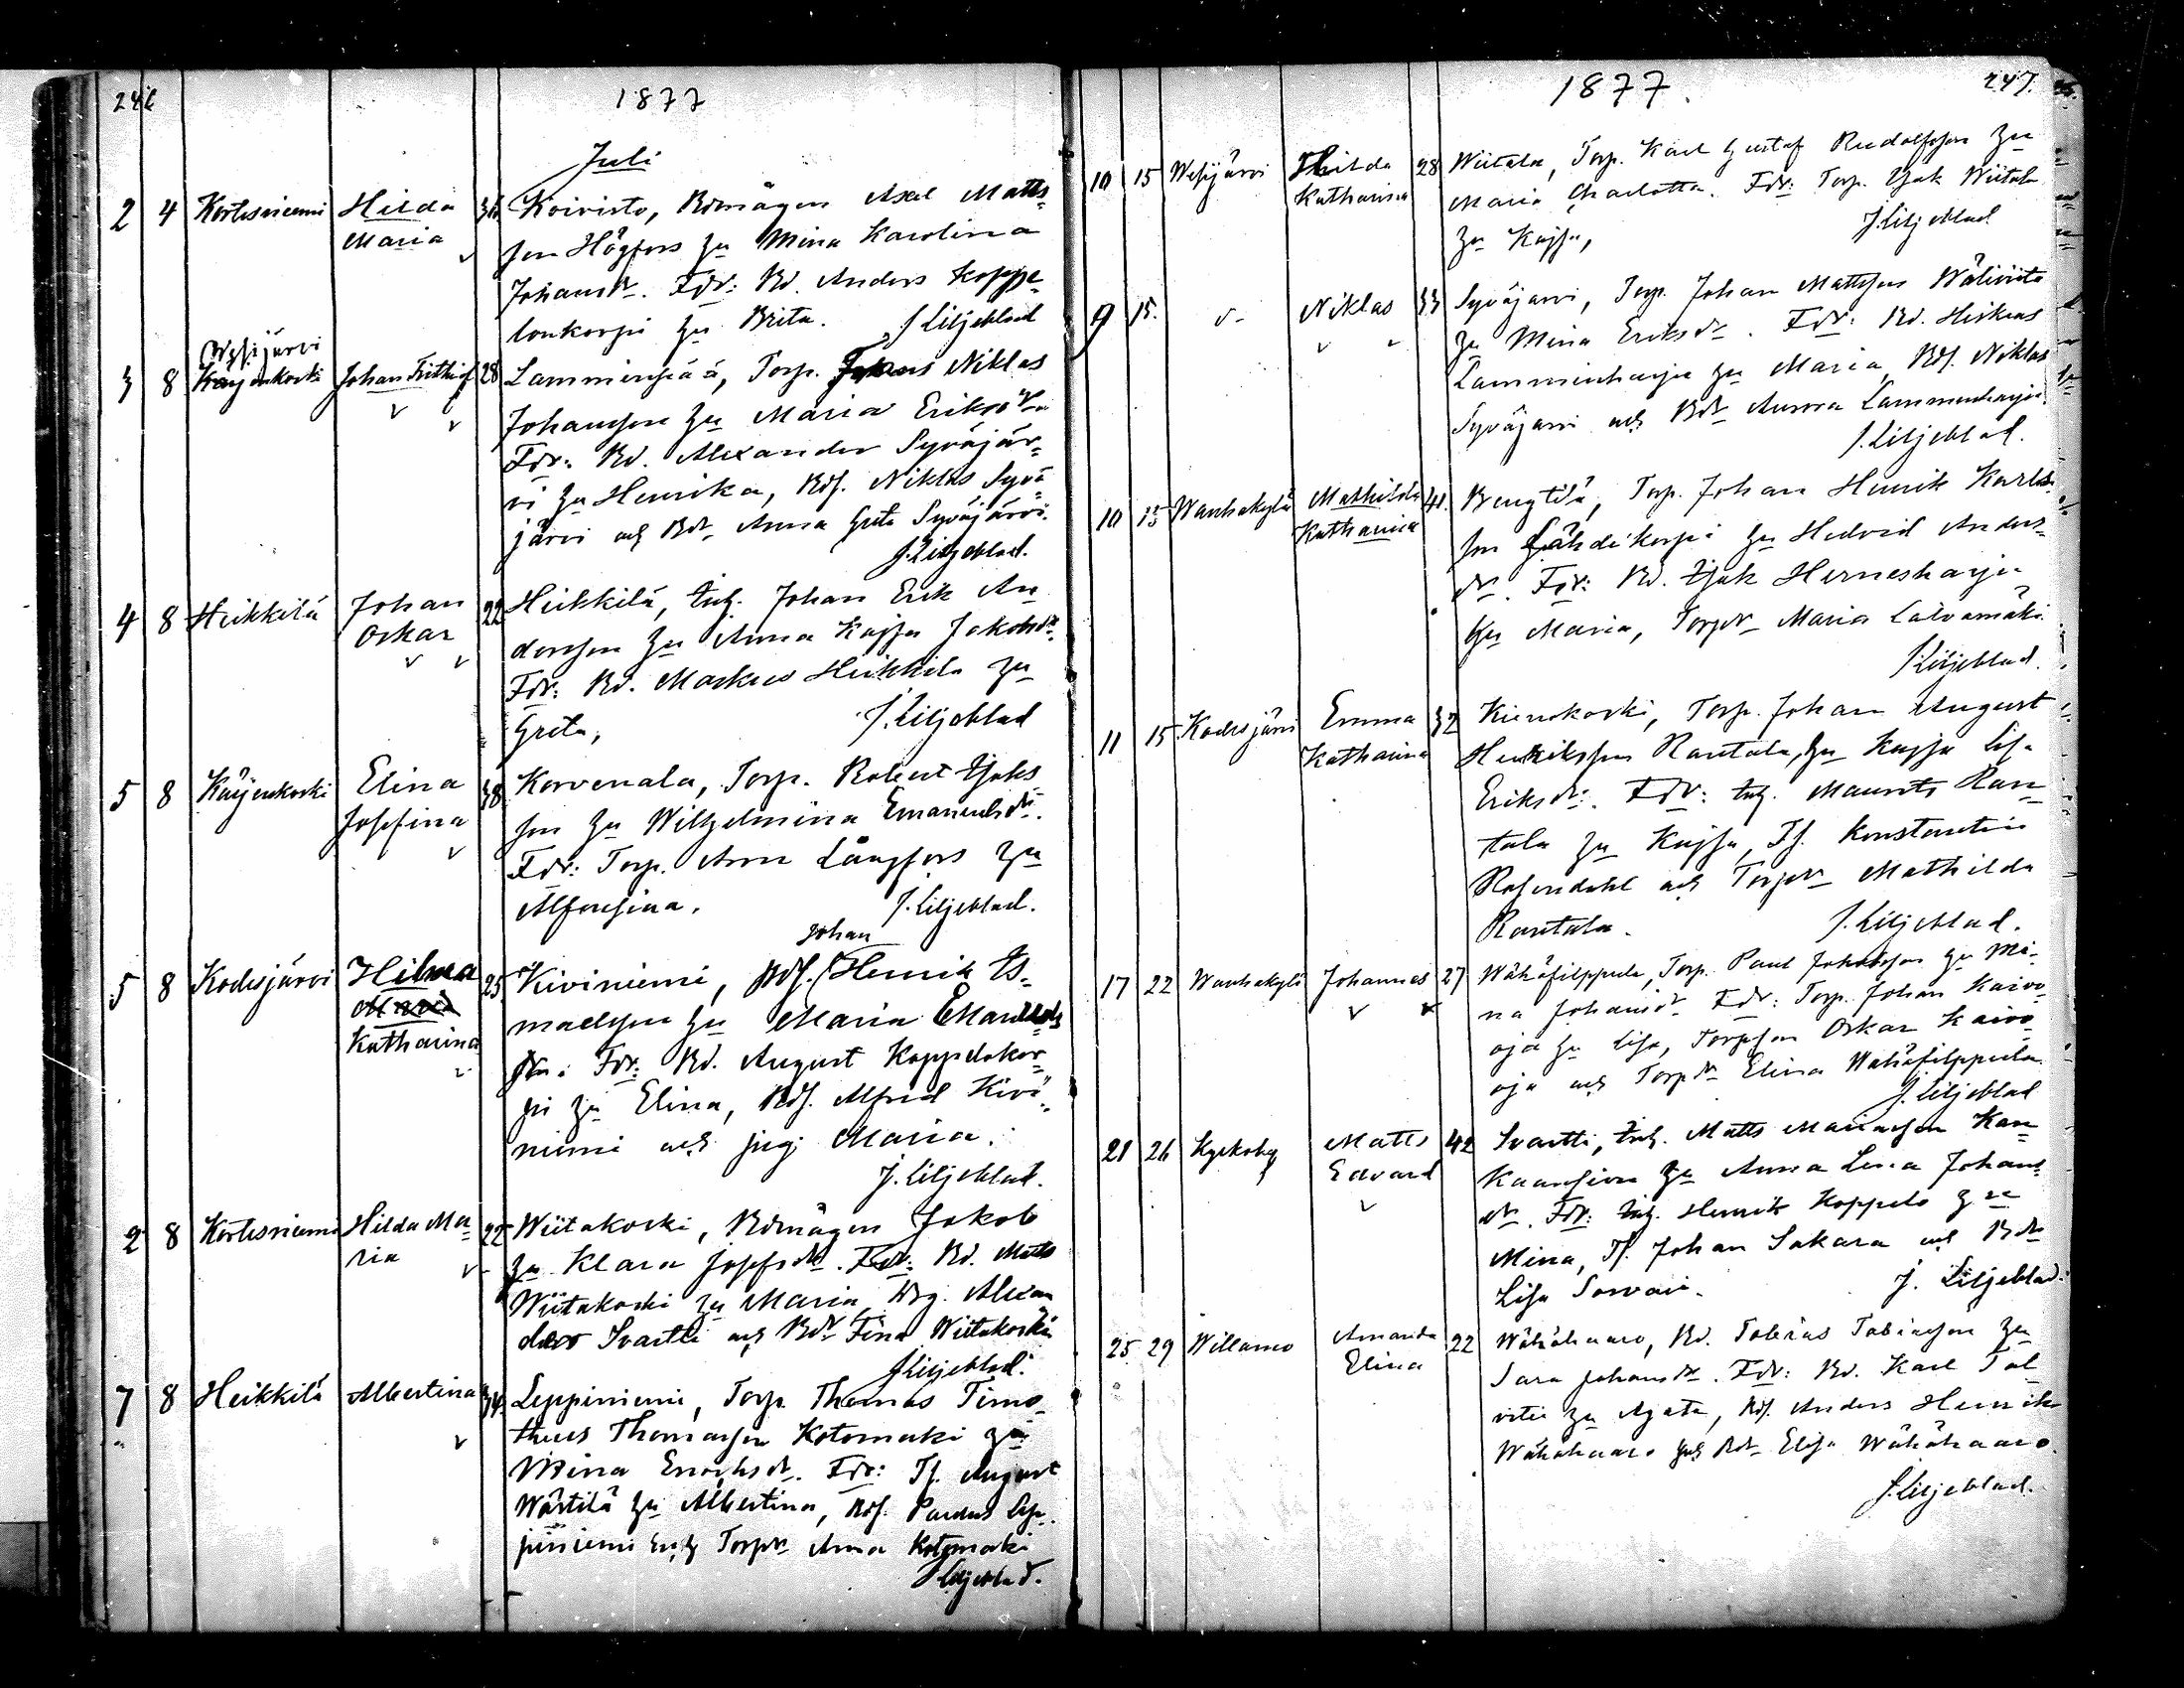 246
1877
Juli
2 4 Kortesniemi Hilda Maria 36 Koivisto, Bdmågen Axel Matts-
son Högfors hu Mina Karolina
Johansdr. Fdr: Bd. Anders Koppe-
lonkorpi hu Brita. J Liljeblad
3 8 Wesijärvi Käyenkoski Johan Frithiof 28 Lamminpää, Torp. Niklas
Johansson hu Maria Eriksdr
Fdr: Bd. Alexander Syväjär-
vi hu Henrika, Bds. Niklas Syvä-
järvi och Bdr Anna Greta Syväjärvi.
J. Liljeblad.
4 8 Heikkilä Johan Oskar 22 Heikkilä, Inh. Johan Erik An-
dersson hu Anna Kajsa Jakobsdr.
Fdr: Bd. Markus Heikkilä hu
Greta, J. Liljeblad
5 8 Käyenkoski Elina Josefina 38 Korvenala, Torp. Robert Isaks
son hu Wilhelmina Emanuelsdr.
Fdr: Torp. Aron Långfors hu
Alfonsina. J. Liljeblad.
5 8 Kodesjärvi Hilma Katharina 25 Kiviniemi, Bds. Johan Henrik Is-
maelsson hu Maria Emanuels
dr. Fdr: Bd. August Koppelokor-
pi hu Elina, Bds. Alfred Kivi-
niemi och pig. Maria.
J. Liljeblad.
2 8 Kortesniemi Hilda Ma-
ria 22 Wiitakoski, Bdmågen Jakob
hu Klara Josefsdr. Fdr: Bd. Matts
Wiitakoski hu Maria, Drg. Alexan
der Svartti och Bdr Fina Wiitakoski
J Liljeblad.
7 8 Heikkilä Albertina 34 Leppiniemi, Torp. Thomas Timo-
theus Thomasson Kotomäki hu
Mina Enochsdr. Fdr: Js. August
Wärtilä hu Albertina, Bds. Paulus Lep-
piniemi och Torpdr Anna Kotomäki
J Liljeblad.
1877.
247.
10 15 Wesijärvi Hilda Katharina 28 Wiitala, Torp. Karl Gustaf Rudolfsson hu
Maria Charlotta. Fdr: Torp. Isak Wiitala
hu Kajsa, J. Liljeblad
9 15. v- Niklas 33 Syväjärvi, Torp. Johan Mattsson Wäliviita
hu Mina Eriksdr. Fdr: Bd.
Lamminharju hu Maria, Bds. Niklas
Syväjärvi och Bdr Aurora Lamminharju.
J. Liljeblad.
10 15 Wanhakylä Mathilda Katharina 41. Bengtilä, Torp. Johan Henrik Karls-
son Lähdekorpi hu Hedvid Anders-
dr. Fdr: Bd. Isak Hernesharju
hu Maria, Torpdr Maria Latvamäki
J Liljeblad.
11 15 Kodesjärvi Emma Katharina 32 Kienokoski, Torp. Johan August
Henriksson Rautala, hu Kajsa Lisa
Eriksdr. Fdr: Inh. Maurits Rau-
tala hu Kajsa, Js. Konstantin
Rosendahl och Torpdr Mathilda
Rautala. J. Liljeblad.
17 22 Wanhakylä Johannes 27 Wähäfilppula, Torp. Paul Jakobsson hu Mi-
na Johansdr. Fdr: Torp. Johan Kaivo-
oja hu Lisa, Torpson Oskar Kaivo-
oja och Torpdr Elina Wähäfilppula.
J. Liljeblad
21 26 Kyrkoby Matts Edvard 42 Svartti, Inh. Matts Mariasson Kan-
kaansivu hu Anna Lena Johans-
dr. Fdr: Inh. Henrik Koppelo hu
Mina, Js. Johan Sakara och Bdr
Lisa Sorvari. J. Liljeblad.
25. 29 Willamo Amanda Elina 22 Wähähaaro, Bd. Tobias Tobiasson hu
Sara Johansdr. Fdr: Bd. Karl Tal-
vitie hu Agata, Bds. Anders Henrik
Wähähaaro och Bdr Elisa Wähähaaro.
J. Liljeblad.